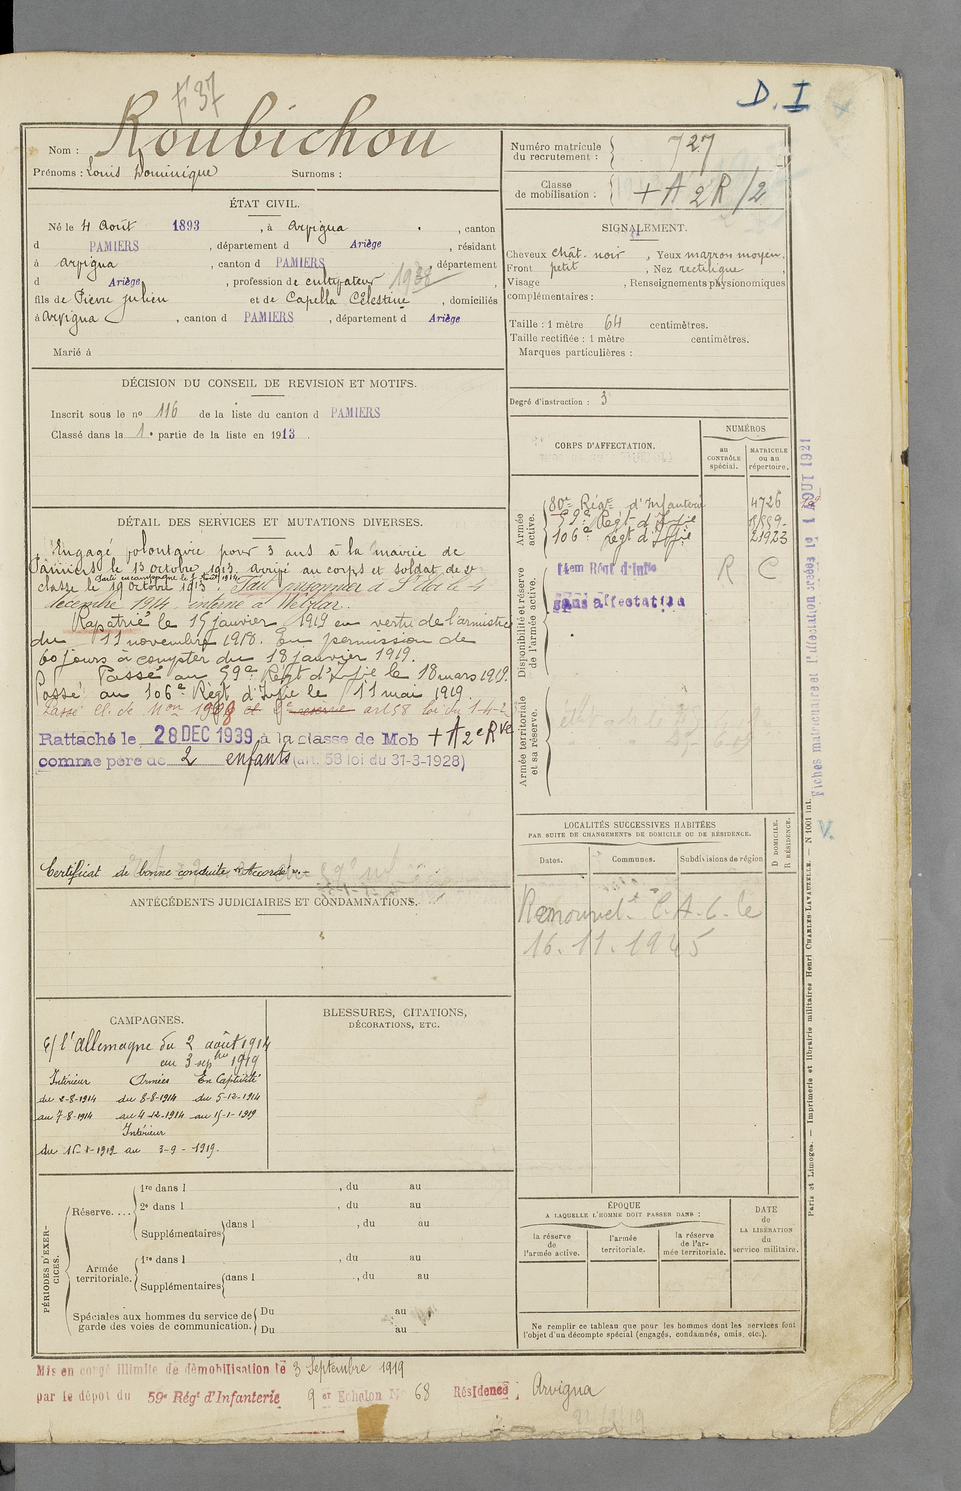 F 37
D. I
Nom : Roubichou
Prénoms : Louis Dominique Surnoms :
Numéro matricule du recrutement : 727
Classe de mobilisation : + A 2 R / 2
ÉTAT CIVIL.
Né le 4 Août 1893, à Arvigna, canton
d PAMIERS, département d Ariège, résidant
à Arvigna, canton d PAMIERS, département
d Ariège, profession de cultivateur 1938,
fils de Pierre Julien et de Capella Célestine, domiciliés
à Arvigna, canton d PAMIERS, département d Ariège
Marié à
SIGNALEMENT.
Cheveux chât. noir, Yeux marron moyen,
Front petit, Nez rectiligne,
Visage, Renseignements physionomiques
complémentaires :
Taille : 1 mètre 64 centimètres.
Taille rectifiée : 1 mètre centimètres.
Marques particulières :
Degré d'instruction : 3
DÉCISION DU CONSEIL DE REVISION ET MOTIFS.
Inscrit sous le no 116 de la liste du canton d PAMIERS
Classé dans la 1e partie de la liste en 1913.
CORPS D'AFFECTATION.
NUMÉROS
au CONTRÔLE spécial.
MATRICULE ou au répertoire.
Armée active.
80e Régt d'Infanterie 4726
59e Régt d'Ifie
106e régt d'Ifie 21923
Disponibilité et réserve de l'armée active.
14em Régt d'Infie R C
sans affectation
Armée territoriale et sa réserve.
DÉTAIL DES SERVICES ET MUTATIONS DIVERSES.
Engagé volontaire pour 3 ans à la mairie de
Pamiers le 13 octobre 1913. Arrivé au corps et soldat de 2e
Parti en campagne le 7 Août 1914
classe le 19 octobre 1913. Fait prisonnier à St Eloi le 4
décembre 1914 interné à Wetzlar.
Rapatrié le 15 janvier 1919 en vertu de l'armistice
du 11 novembre 1918. En permission de
60 jours à compter du 18 janvier 1919.
Passé au 59e Régt d'Ifie le 18 mars 1919.
Passé au 106e Régt d'Ifie le 11 mai 1919.
Passé cl. de Mon 19 art 58 loi du 1-4-2
Rattaché le 28 DEC 1939 à la classe de Mob + A 2e Rve
comme père de 2 enfants (art. 58 loi du 31-3-1928)
Certificat de bonne conduite "Accordé".
Fiches matriculaire et d'affectation créées le 1 AOUT 1921
V.
ANTÉCÉDENTS JUDICIAIRES ET CONDAMNATIONS.
LOCALITÉS SUCCESSIVES HABITÉES
PAR SUITE DE CHANGEMENTS DE DOMICILE OU DE RÉSIDENCE.
Dates. Communes. Subdivisions de région
D DOMICILE.
R RÉSIDENCE.
16.11.1945
CAMPAGNES.
C/ l'Allemagne du 2 août 1914
au 3 septbre 1919
Intérieur Armées En Captivité
du 2-8-1914 du 8-8-1914 du 5-12-1914
au 7-8-1914 au 4-12-1914 au 15-1-1919
Intérieur
du 16-1-1919 au 3-9-1919.
BLESSURES, CITATIONS,
DÉCORATIONS, ETC.
PÉRIODES D'EXERCICES.
Réserve....
1re dans l , du au
2e dans l , du au
Supplémentaires dans l , du au
Armée territoriale.
1re dans l , du au
Supplémentaires dans l , du au
Spéciales aux hommes du service de garde des voies de communication.
Du au
Du au
ÉPOQUE
A LAQUELLE L'HOMME DOIT PASSER DANS :
la réserve de l'armée active.
l'armée territoriale.
la réserve de l'armée territoriale.
DATE de LA LIBÉRATION du service militaire.
Ne remplir ce tableau que pour les hommes dont les services font
l'objet d'un décompte spécial (engagés, condamnés, omis, etc.).
Paris et Limoges. — Imprimerie et librairie militaires Henri CHARLES-LAVAUZELLE. — N 1001 int.
Mis en congé illimité de démobilisation le 3 Septembre 1919
par le dépôt du 59e Régt d'Infanterie 9 er Echelon No 68 Résidence : Arvigna